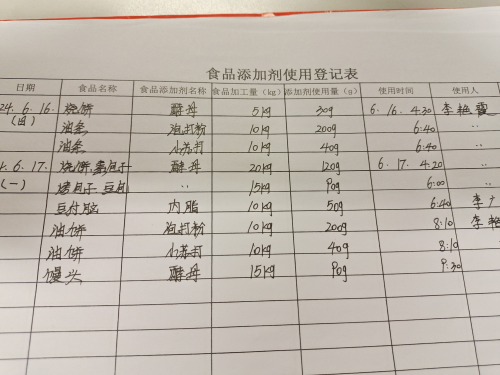 食品添加剂使用登记表
日期 食品名称 食品添加剂名称 食品加工量（kg） 添加剂使用量（g） 使用时间 使用人
24.6.16. 烧饼 酵母 5kg 30g 6.16.4:30 李艳霞
（日） 油条 泡打粉 10kg 200g 6:40 〃
油条 小苏打 10kg 40g 6:40 〃
4.6.17. 烧饼 包子 酵母 20kg 120g 6.17.4:20 〃
（一） 包子 豆 〃 15kg 90g 6:00 〃
豆付脑 内脂 10kg 50g 6:40 李
油饼 泡打粉 10kg 200g 8:10 李艳
油饼 小苏打 10kg 40g 8:10
馒头 酵母 15kg 90g 9:30